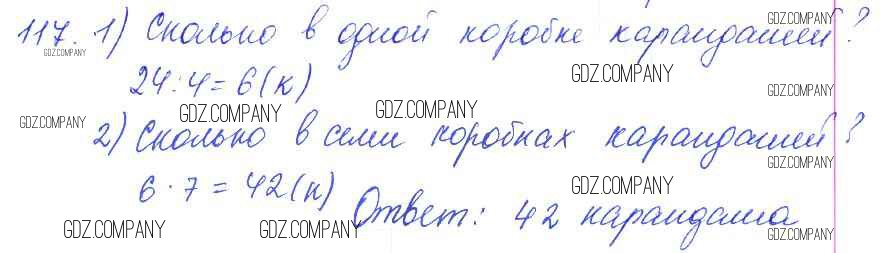 117. 1) Сколько в одной коробке карандашей?
24:4=6(к)
2) Сколько в семи коробках карандашей?
6·7=42(к)
Ответ: 42 карандаша
GDZ.COMPANY
GDZ.COMPANY
GDZ.COMPANY
GDZ.COMPANY
GDZ.COMPANY
GDZ.COMPANY
GDZ.COMPANY
GDZ.COMPANY
GDZ.COMPANY
GDZ.COMPANY
GDZ.COMPANY
GDZ.COMPANY